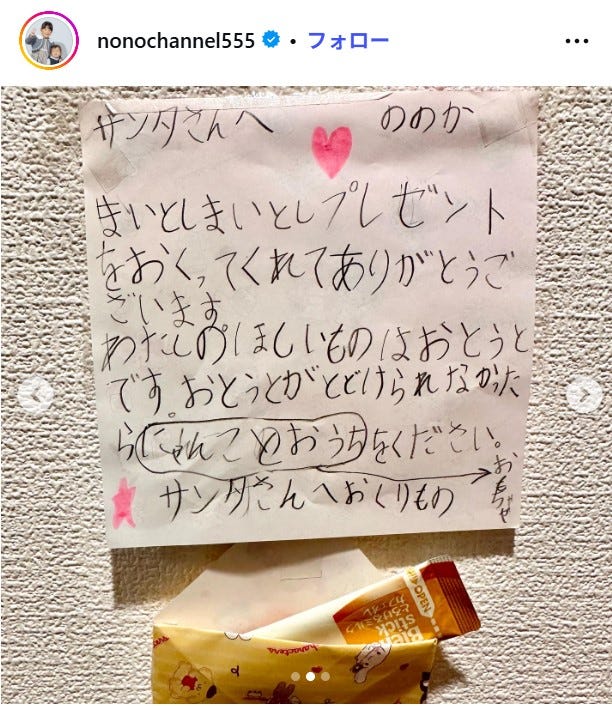 nonochannel555 • フォロー
サンタさんへ ののか
まいとしまいとしプレゼント
をおくってくれてありがとうご
ざいます
わたしのほしいものはおとうと
です。おとうとがとどけられなかった
ら、にゃんこのおうちをください。
おもちゃ
サンタさんへおくりもの
OPEN
Blendy
stick
とろけるミルク
カフェオレ
haracters